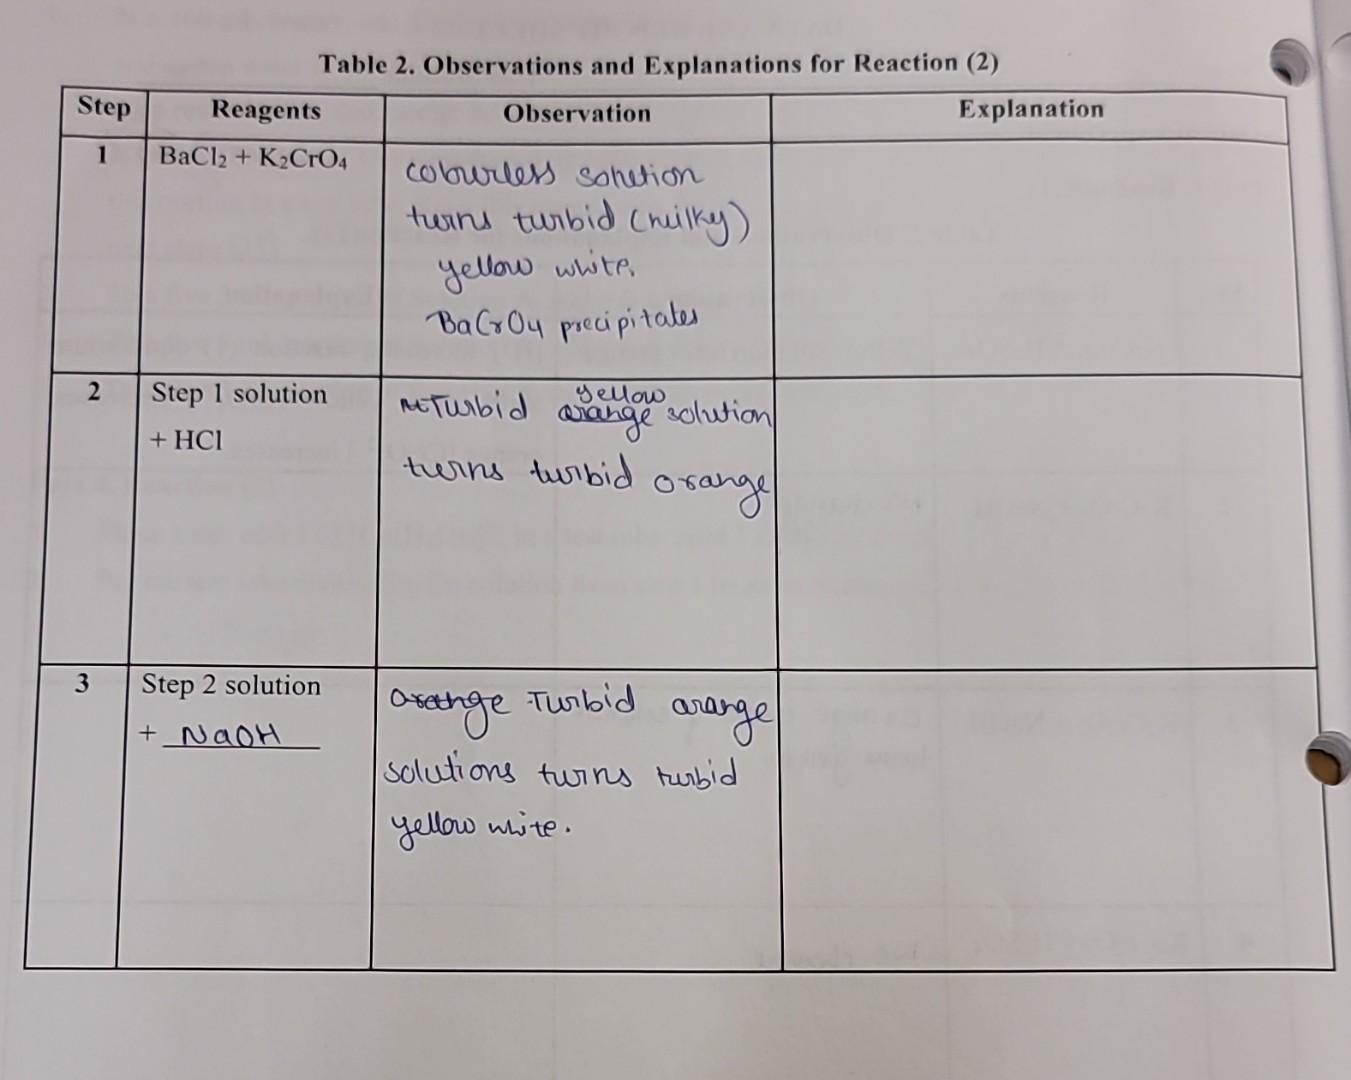 Table 2. Observations and Explanations for Reaction (2)
Step Reagents Observation Explanation
1 BaCl2 + K2CrO4
colourless solution
turns turbid (milky)
yellow white.
BaCrO4 precipitates
2 Step 1 solution
+ HCl
Turbid orange yellow solution
turns turbid orange
3 Step 2 solution
+ NaOH
orange Turbid orange
solutions turns turbid
yellow white.